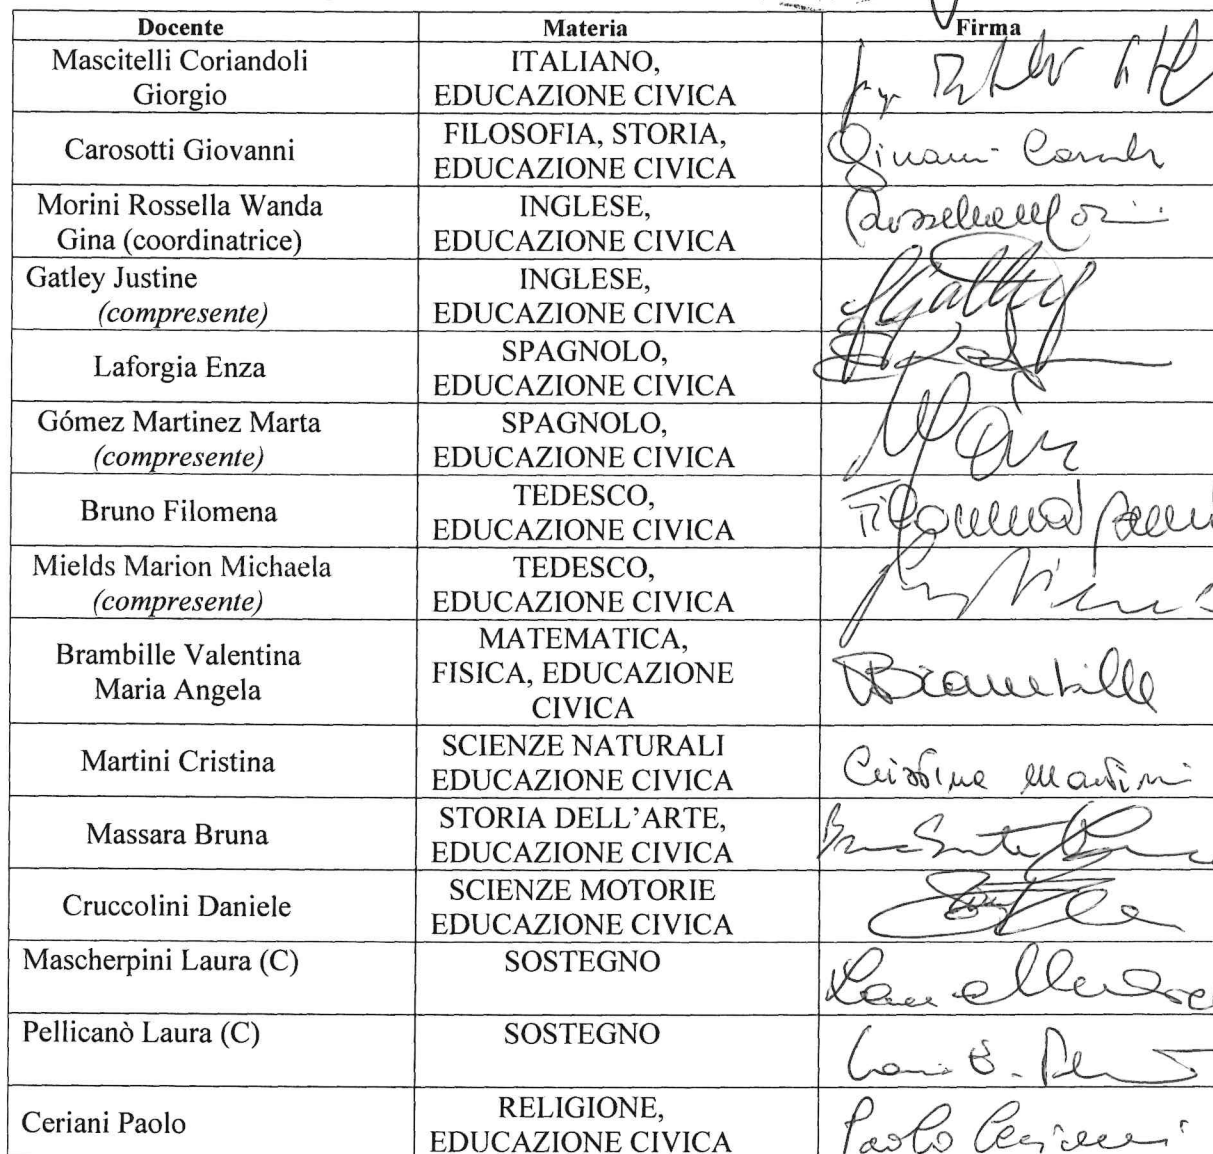 Docente Materia Firma
Mascitelli Coriandoli
Giorgio
ITALIANO,
EDUCAZIONE CIVICA
Carosotti Giovanni
FILOSOFIA, STORIA,
EDUCAZIONE CIVICA
Morini Rossella Wanda
Gina (coordinatrice)
INGLESE,
EDUCAZIONE CIVICA
Rossella Morini
Gatley Justine
(compresente)
INGLESE,
EDUCAZIONE CIVICA
JGatley
Laforgia Enza
SPAGNOLO,
EDUCAZIONE CIVICA
Gómez Martinez Marta
(compresente)
SPAGNOLO,
EDUCAZIONE CIVICA
Bruno Filomena
TEDESCO,
EDUCAZIONE CIVICA
Filomena
Mields Marion Michaela
(compresente)
TEDESCO,
EDUCAZIONE CIVICA
Brambille Valentina
Maria Angela
MATEMATICA,
FISICA, EDUCAZIONE
CIVICA
Brambille
Martini Cristina
SCIENZE NATURALI
EDUCAZIONE CIVICA
Cristina Martini
Massara Bruna
STORIA DELL’ARTE,
EDUCAZIONE CIVICA
Cruccolini Daniele
SCIENZE MOTORIE
EDUCAZIONE CIVICA
Mascherpini Laura (C)
SOSTEGNO
Pellicanò Laura (C)
SOSTEGNO
Ceriani Paolo
RELIGIONE,
EDUCAZIONE CIVICA
Paolo Ceriani